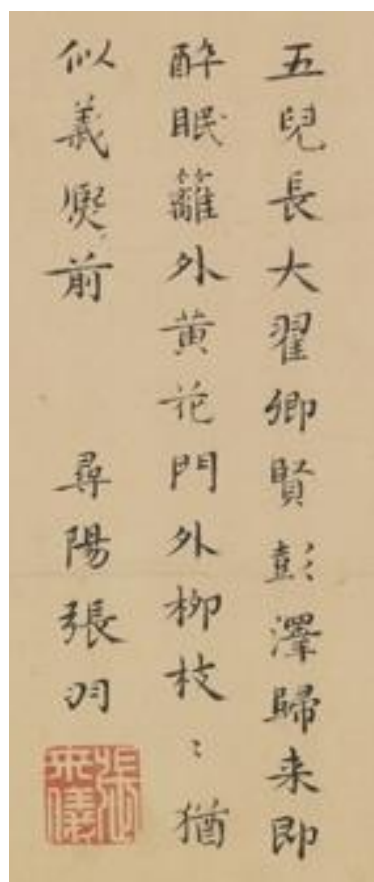 五兒長大翟卿賢彭澤歸来即
醉眠籬外黄花門外柳枝〻猶
似義熈前
尋陽張羽
張来儀